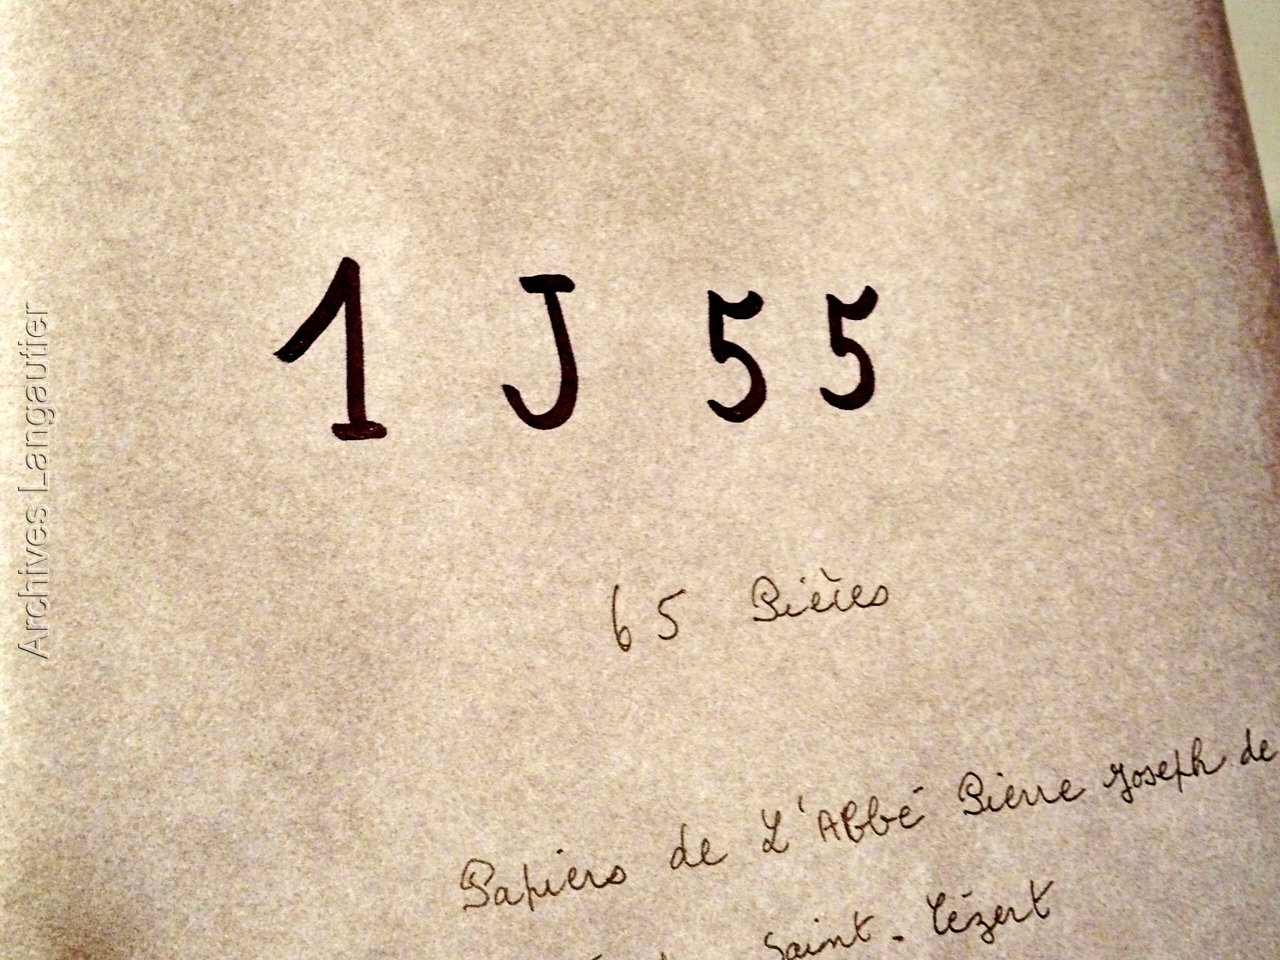 1 J 55
65 Pièces
Papiers de L'Abbé Pierre Joseph de
Saint-Cézert
Archives Langautier